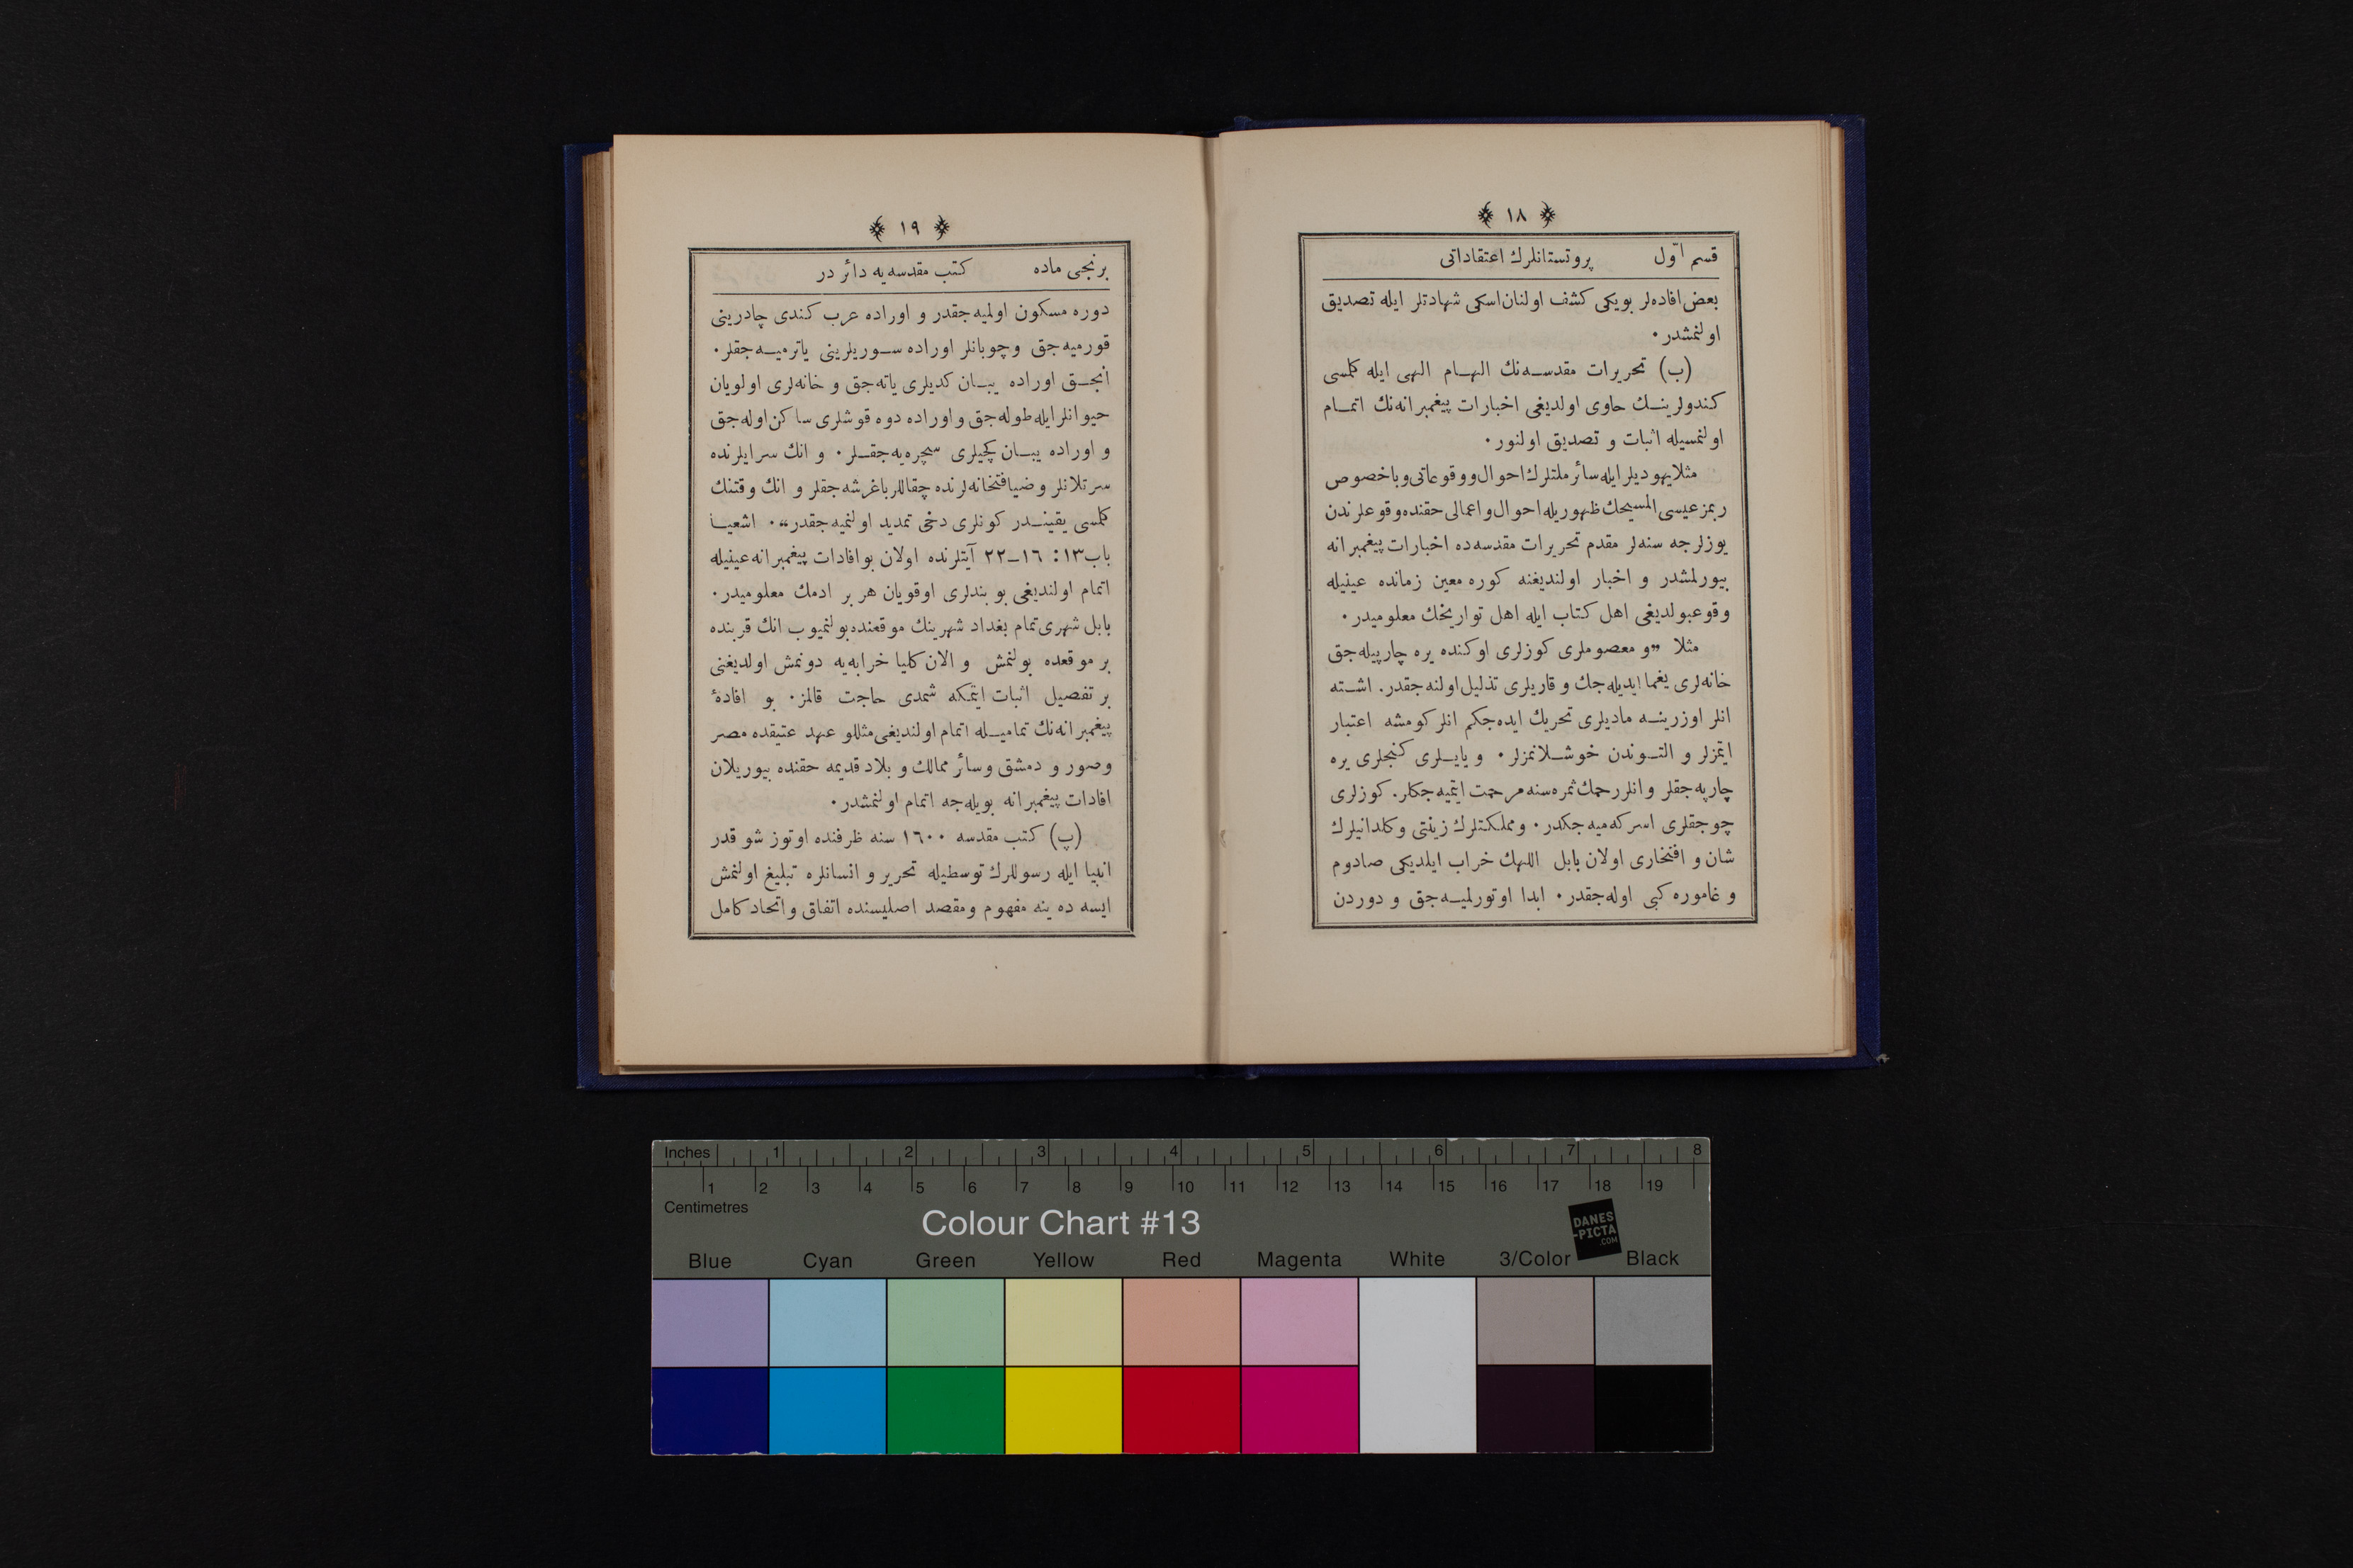 ﴾ ١٨ ﴿
قسم اوّل پروتستانلرك اعتقاداتی
بعض افاده‌لر بویكی كشف اولنان اسكی شهادتلر ایله تصدیق
اولنمشدر٠
(ب) تحریرات مقدسه‌نك الهام الهی ایله كلمسی
كندولرینك حاوی اولدیغی اخبارات پیغمبرانه‌نك اتمام
اولنمسیله اثبات و تصدیق اولنور٠
مثلا یهودیلر ایله سائر ملتلرك احوال و وقوعاتی و باخصوص
ربمز عیسی المسیحك ظهوریله احوال و اعمالی حقنده وقوعلرندن
یوزلرجه سنه‌لر مقدم تحریرات مقدسه‌ده اخبارات پیغمبرانه
بیورلمشدر و اخبار اولندیغنه كوره معین زمانده عینیله
وقوعبولدیغی اهل كتاب ایله اهل تواریخك معلومیدر٠
مثلا „و معصوملری كوزلری اوكنده یره چارپیله‌جق
خانه‌لری یغما ایدیله‌جك و قاریلری تذلیل اولنه‌جقدر. اشته
انلر اوزرینه مادیلری تحریك ایده‌جكم انلر كومشه اعتبار
ایتمزلر و التوندن خوشلانمزلر٠ و یایلری كنجلری یره
چارپه‌جقلر و انلر رحمك ثمره‌سنه مرحمت ایتمیه‌جكلر. كوزلری
چوجقلری اسركه‌میه‌جكدر٠ و مملكتلرك زینتی و كلدانیلرك
شان و افتخاری اولان بابل اللهك خراب ایلدیكی صادوم
و غاموره كبی اوله‌جقدر٠ ابدا اوتورلمیه‌جق و دوردن
﴾ ١٩ ﴿
برنجی ماده كتب مقدسه‌یه دائر در
دوره مسكون اولمیه‌جقدر و اوراده عرب كندی چادرینی
قورمیه‌جق و چوبانلر اوراده سوریلرینی یاترمیه‌جقلر٠
انجق اوراده یبان كدیلری یاته‌جق و خانه‌لری اولویان
حیوانلر ایله طوله‌جق و اوراده دوه قوشلری ساكن اوله‌جق
و اوراده یبان كچیلری سچره‌یه‌جقلر٠ و انك سرایلرنده
سرتلانلر و ضیافتخانه‌لرنده چقاللر باغرشه‌جقلر و انك وقتنك
كلمسی یقیندر كونلری دخی تمدید اولنمیه‌جقدر“٠ اشعیا
باب ١٣: ١٦ـ٢٢ آیتلرنده اولان بو افادات پیغمبرانه عینیله
اتمام اولندیغی بو بندلری اوقویان هر بر ادمك معلومیدر٠
بابل شهری تمام بغداد شهرینك موقعنده بولنمیوب انك قربنده
بر موقعده بولنمش و الان كلیا خرابه‌یه دونمش اولدیغنی
بر تفصیل اثبات ایتمكه شمدی حاجت قالمز٠ بو افادهٔ
پیغمبرانه‌نك تمامیله اتمام اولندیغی مثللو عهد عتیقده مصر
و صور و دمشق و سائر ممالك و بلاد قدیمه حقنده بیوریلان
افادات پیغمبرانه بویله‌جه اتمام اولنمشدر٠
(پ) كتب مقدسه ١٦٠٠ سنه ظرفنده اوتوز شو قدر
انبیا ایله رسوللرك توسطیله تحریر و انسانلره تبلیغ اولنمش
ایسه ده ینه مفهوم و مقصد اصلیسنده اتفاق و اتحاد كامل
Inches 1 2 3 4 5 6 7 8
1 2 3 4 5 6 7 8 9 10 11 12 13 14 15 16 17 18 19
Centimetres
Colour Chart #13
DANES
-PICTA
.COM
Blue Cyan Green Yellow Red Magenta White 3/Color Black